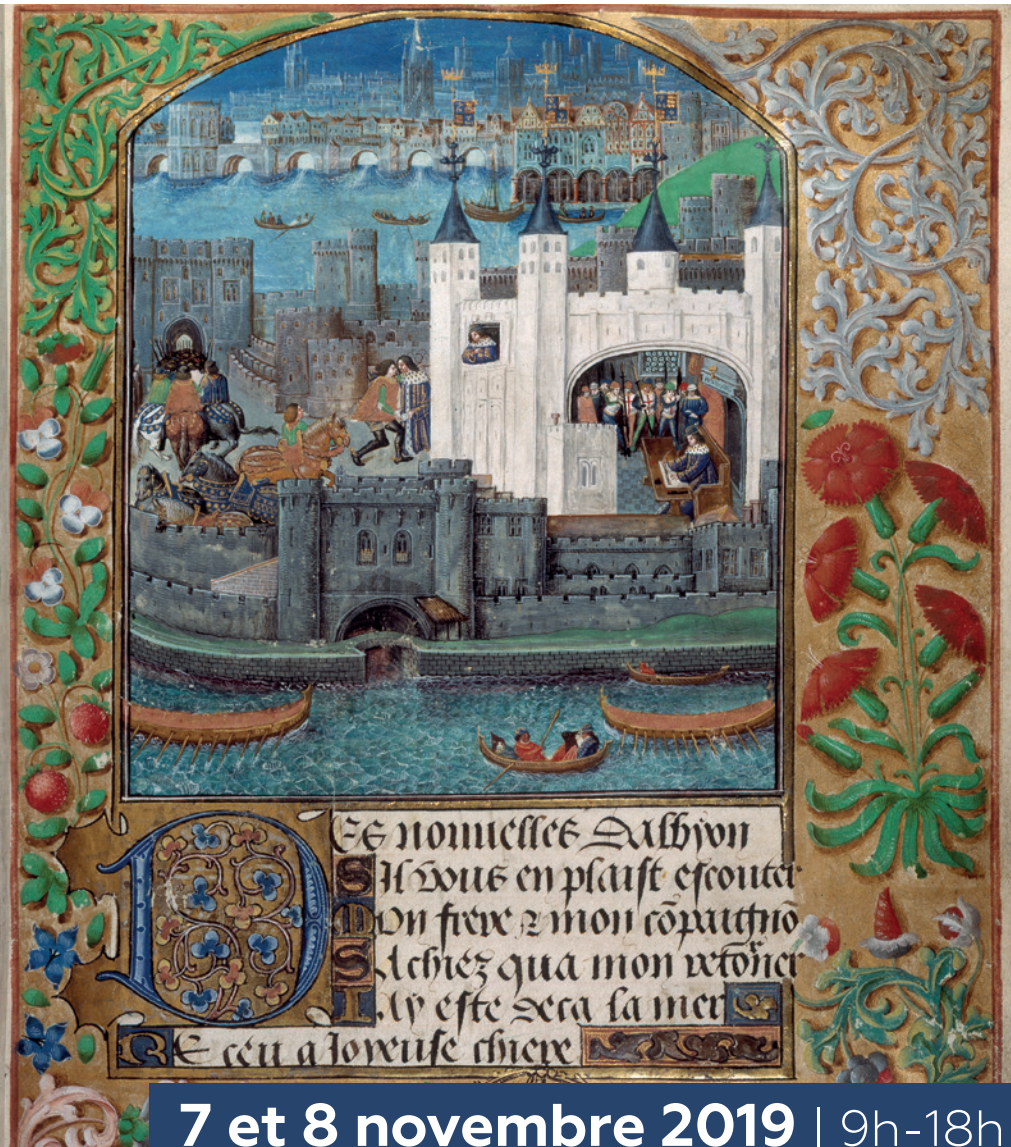 Des nouuelles Dalbyon
Sil vous en plaist escouter
Mon frere & mon cōpaignō
Sachiez qua mon retor̄ner
Iay este deca la mer
Receu a Joyeuse chiere
7 et 8 novembre 2019 | 9h-18h